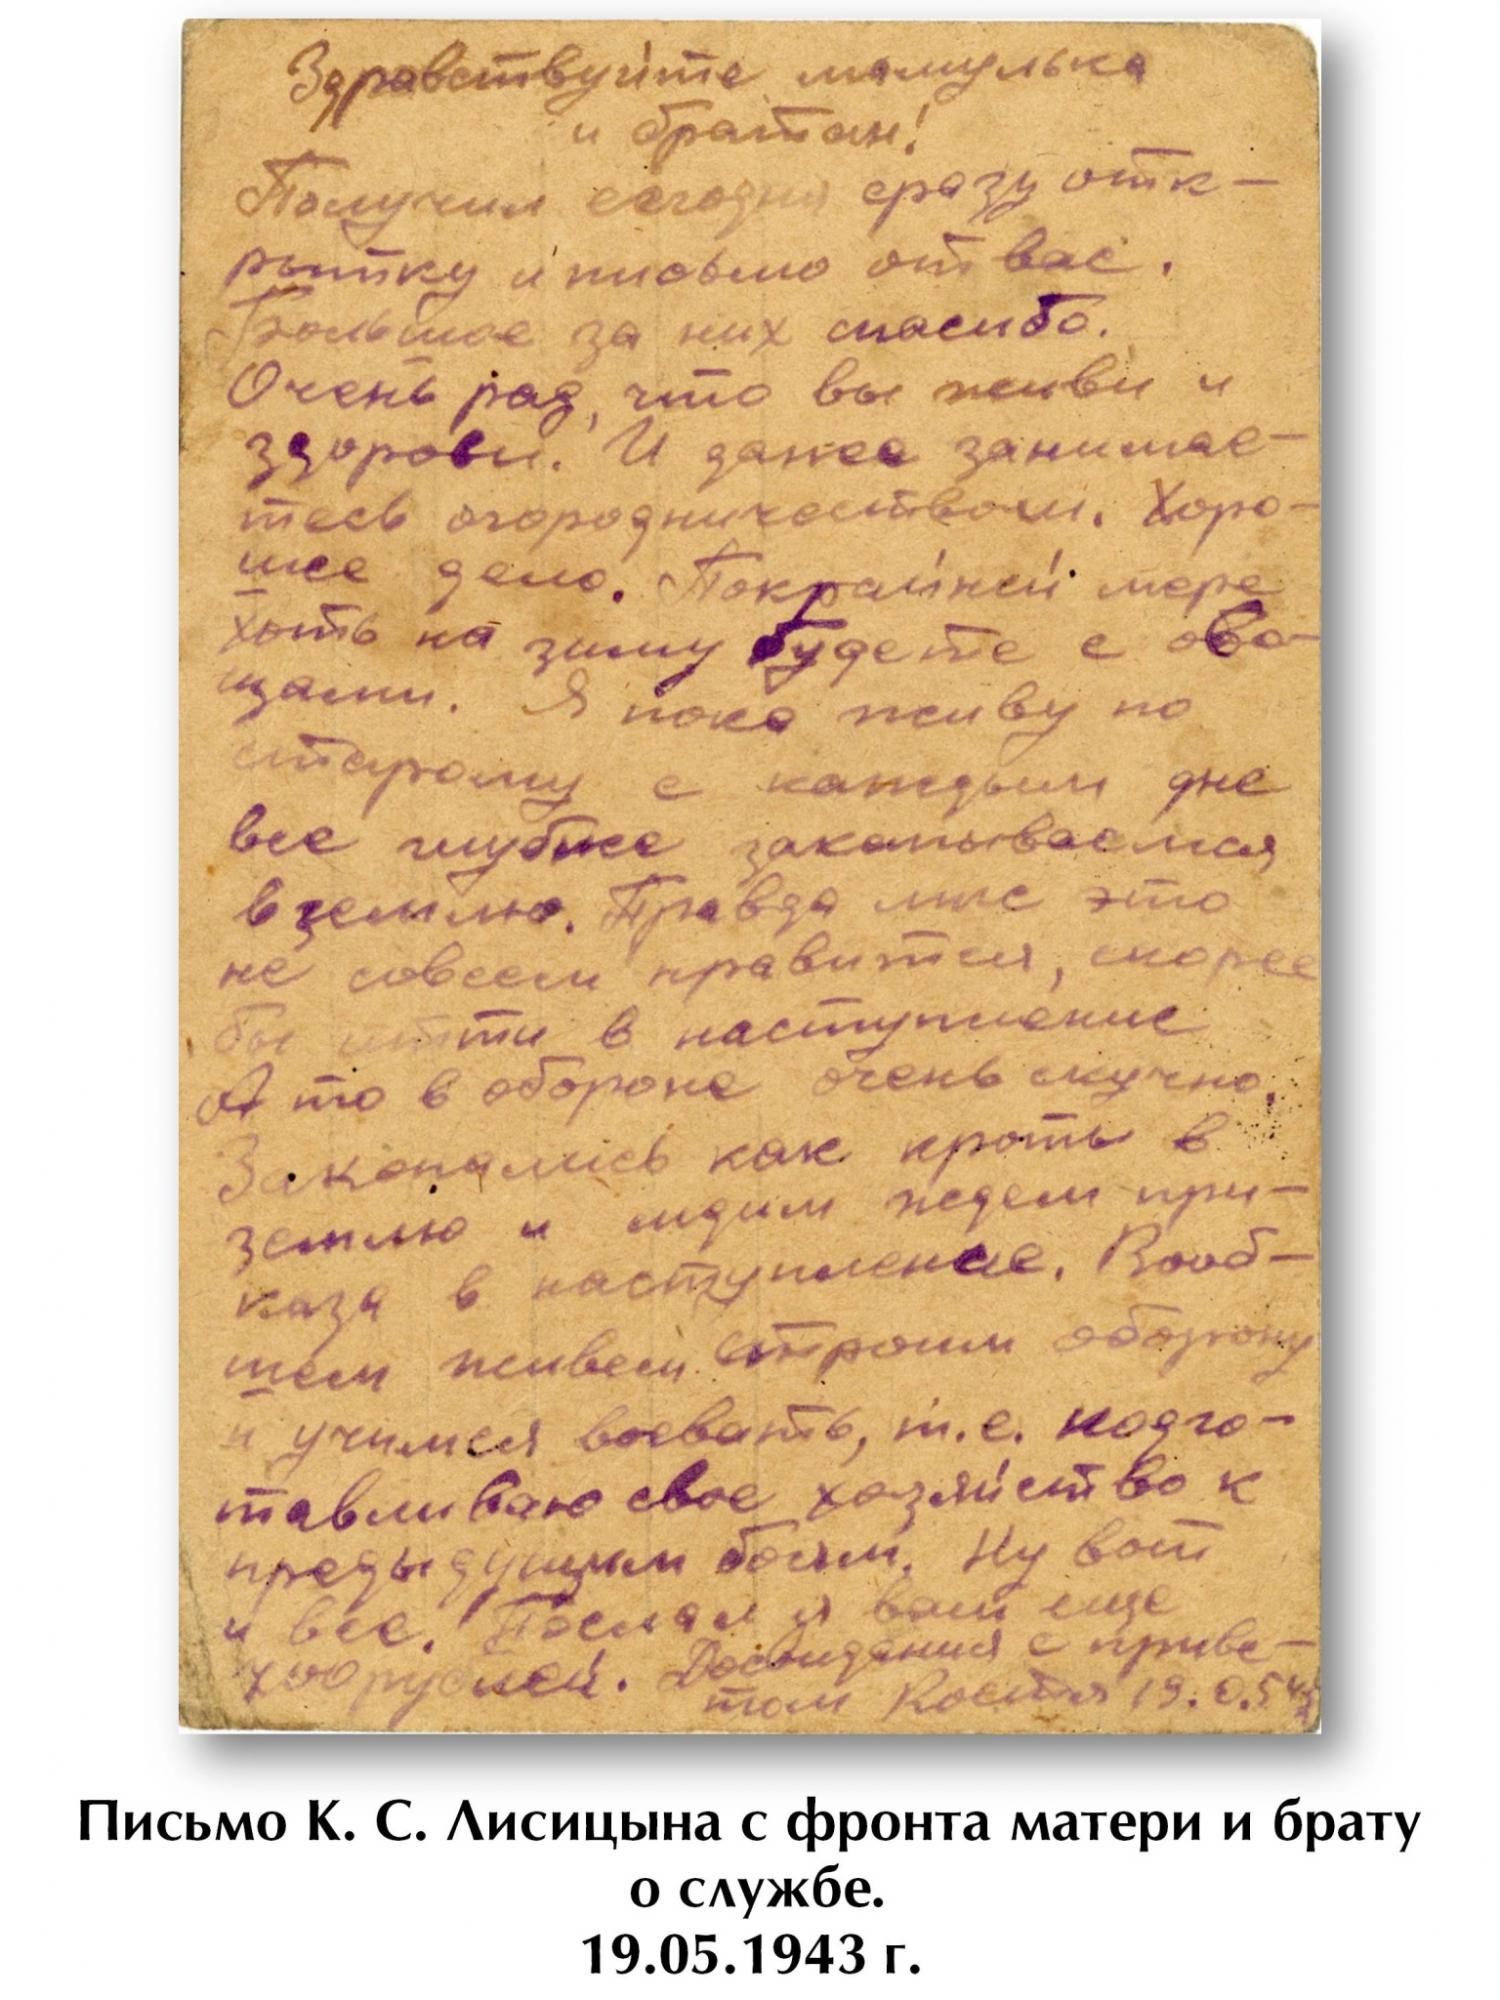 Здравствуйте мамулька
и братан!
Получил сегодня сразу отк-
рытку и письмо от вас.
Большое за них спасибо.
Очень рад, что вы живы и
здоровы. И даже занимае-
тесь огородничеством. Хоро-
шее дело. Покрайней мере
хоть на зиму будете с ово-
щами. Я пока живу по
старому с каждым дне
все глубже закапываемся
в землю. Правда мне это
не совсем нравится, скорее
бы итти в наступление
А то в обороне очень скучно.
Закопались как кроты в
землю и сидим ждем при-
каза в наступление. Вооб-
щем живем строим оборону
и учимся воевать, т.е. подго-
тавливаю свое хозяйство к
предыдущим боям. Ну вот
и все. Послал я вам еще
рублей. Досвидания с приве-
том Костя 19.0.5 43
Письмо К. С. Лисицына с фронта матери и брату
о службе.
19.05.1943 г.